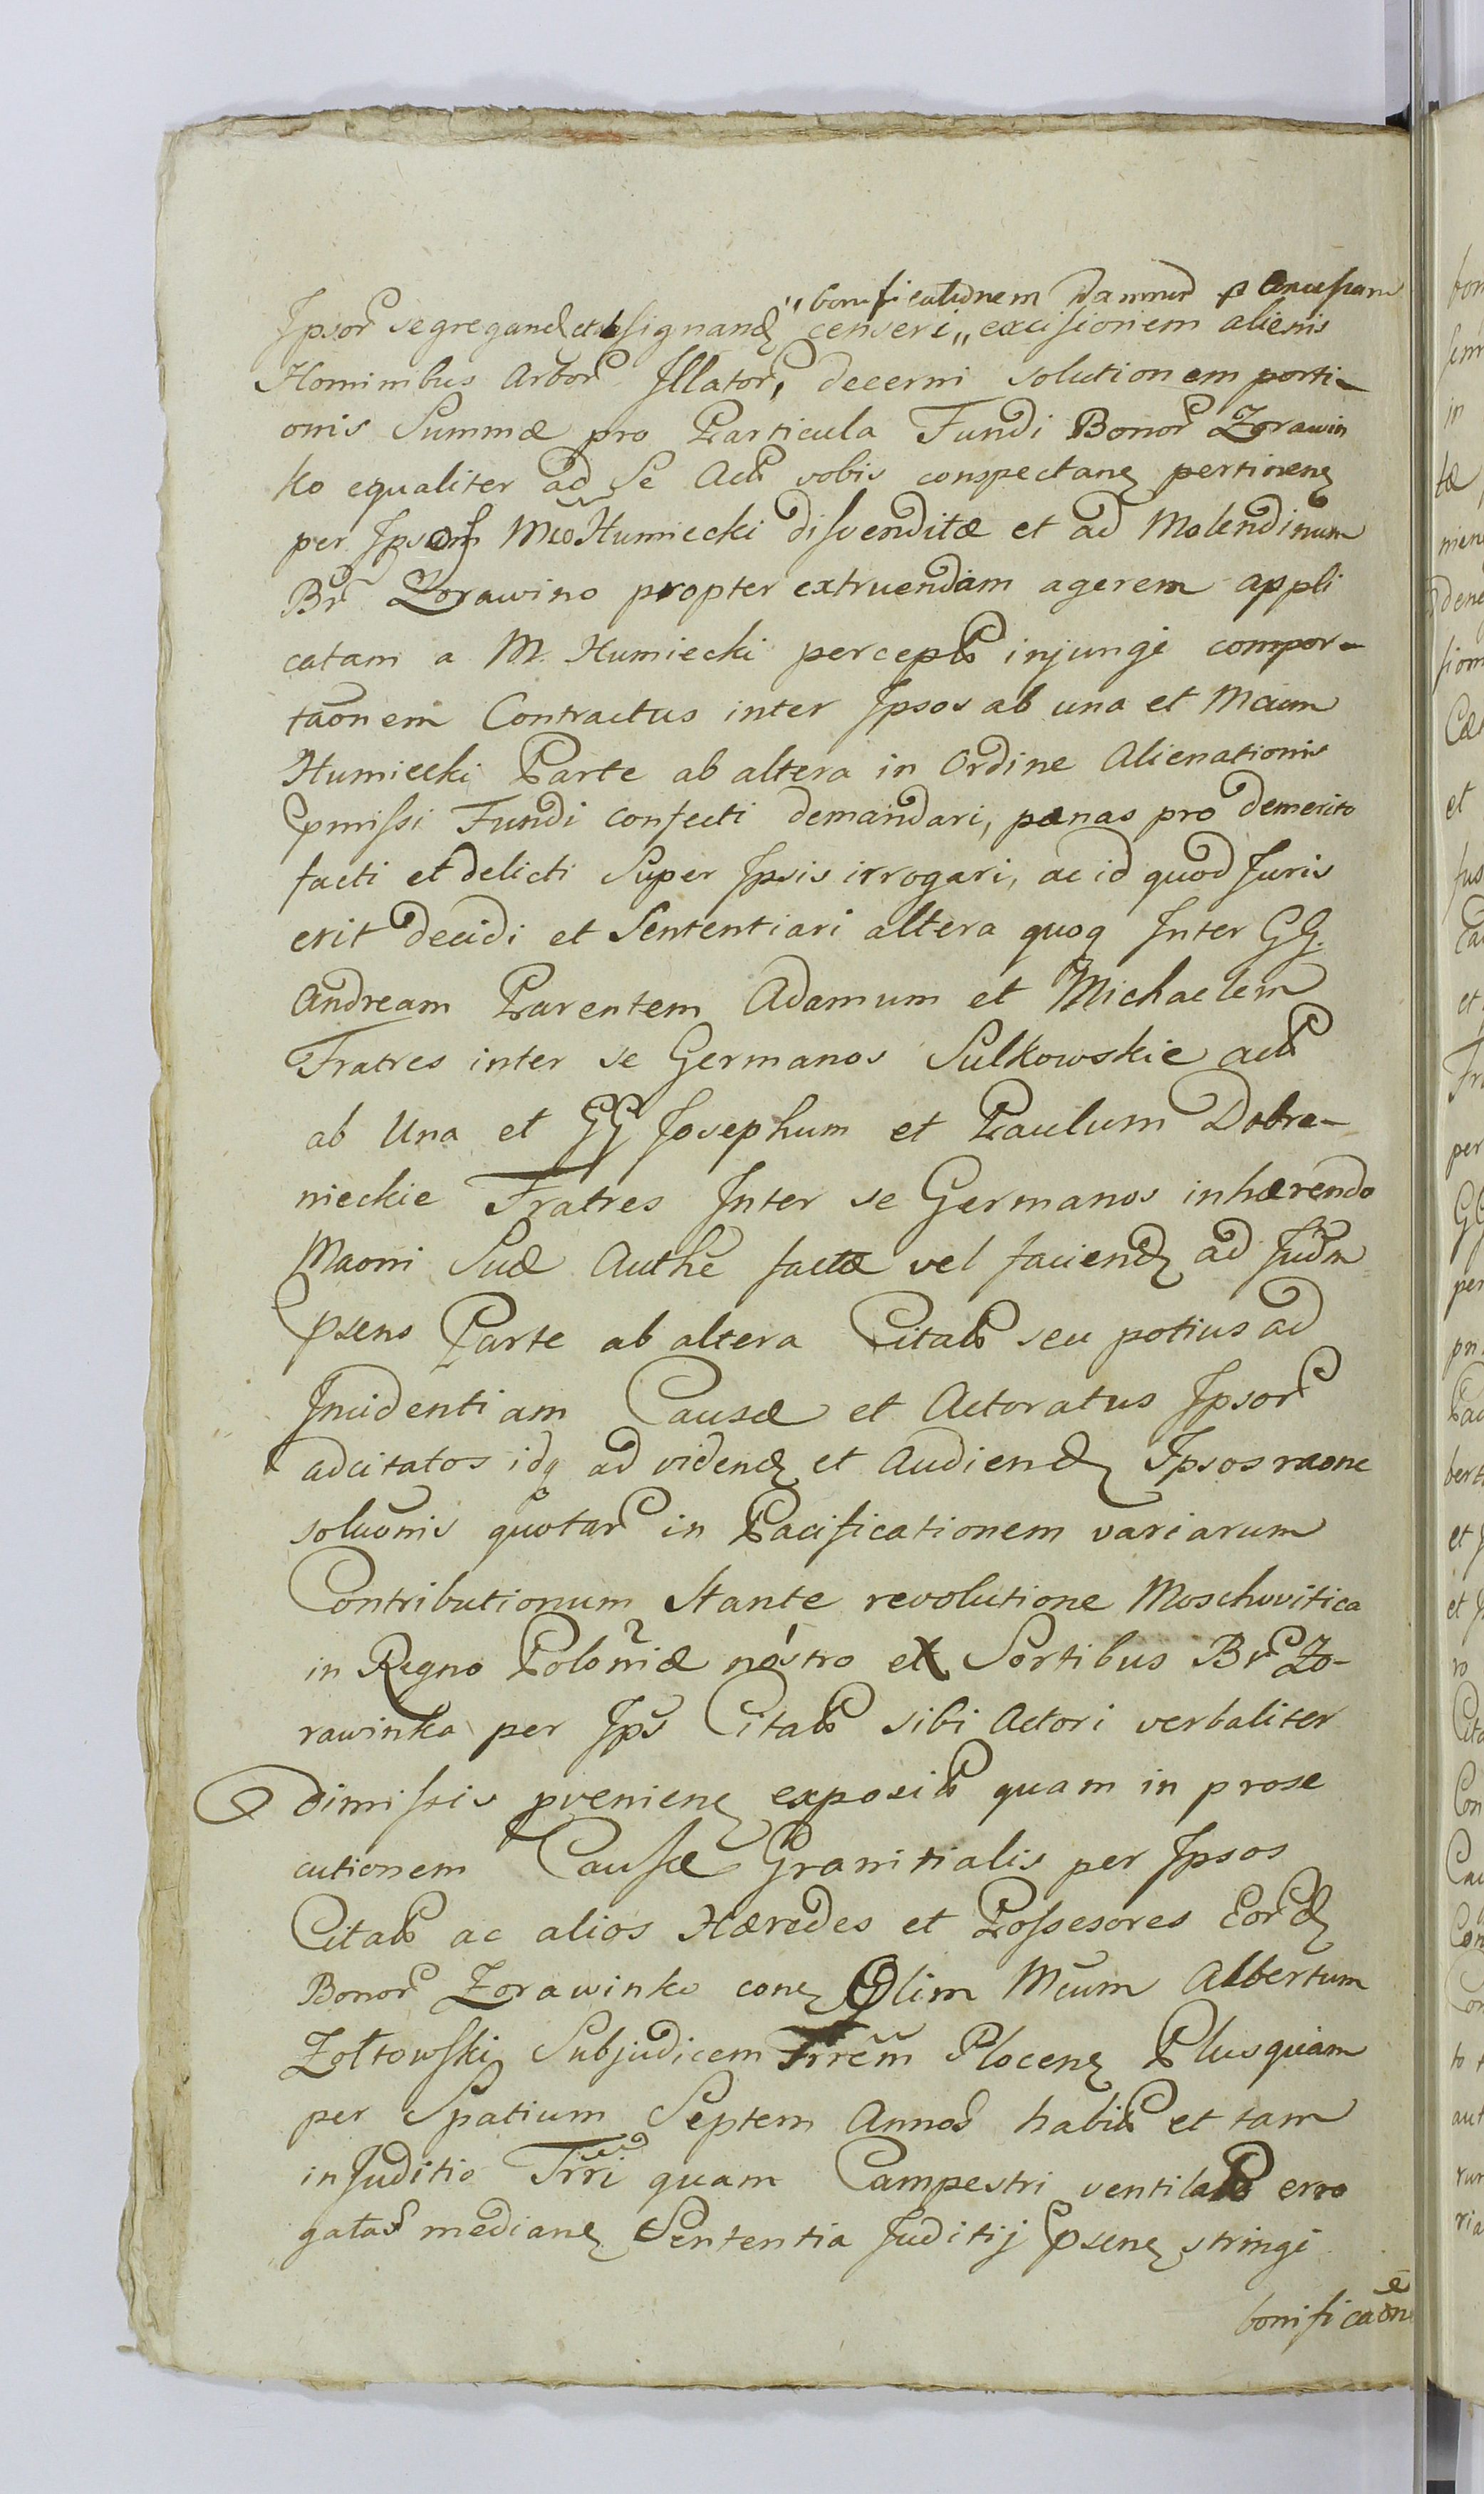 "bonificationem damnor p Concessam
Ipsor segregand et assignand censeri „ excisionem alienis
Hominibus Arbor Illator, decerni solutionem porti-
onis Summæ pro Particula Fundi Bonor Zorawin
ko equaliter ad Se Actu vobis conspectan pertinen
per Ipsum Mco Humiecki disvenditæ et ad Molendinum
Br Zorawino propter extruendam agerem appli
catam a M. Humiecki percepta injungi compor-
taonem Contractus inter Ipsos ab una et Mcum
Humiecki Parte ab altera in Ordine Alienationis
pmissi Fundi confecti demandari, pænas pro demerito
facti et delicti Super Ipsis irrogari, ac id quod Juris
erit decidi et Sententiari altera quoq Inter GG.
Andream Parentem Adamum et Michaelem
Fratres inter se Germanos Sulkowskie act
ab Una et GG Josephum et Paulum Dobra-
nieckie Fratres Inter se Germanos inhærendo
Maoni Suæ Authe factæ vel faciend ad Judm
psens Parte ab altera Citatos seu potius ad
Incidentiam Causæ et Actoratus Ipsor
adcitatos idq ad videnđ et Audienđ Ipsos raone
soluonis quotar in Pacificationem variarum
Contributionum Stante revolutione Moschovitica
in Regno Poloniæ nostro ex Sortibus Br Zo-
rawinka per Ips Citatos sibi Actori verbaliter
dimissis pvenien exposit quam in prose
cutionem Causæ Granitialis per Ipsos
Citatos ac alios Hæredes et Possesores Eord
Bonor Zorawinko con Olim Mcum Albertum
Zołtowski Subjudicem Trrem Plocen Plusquam
per Spatium Septem Annos habit et tam
in Juditio Trri quam Campestri ventilat erro
gatas median Sententia Juditij psen stringi
bonificaone